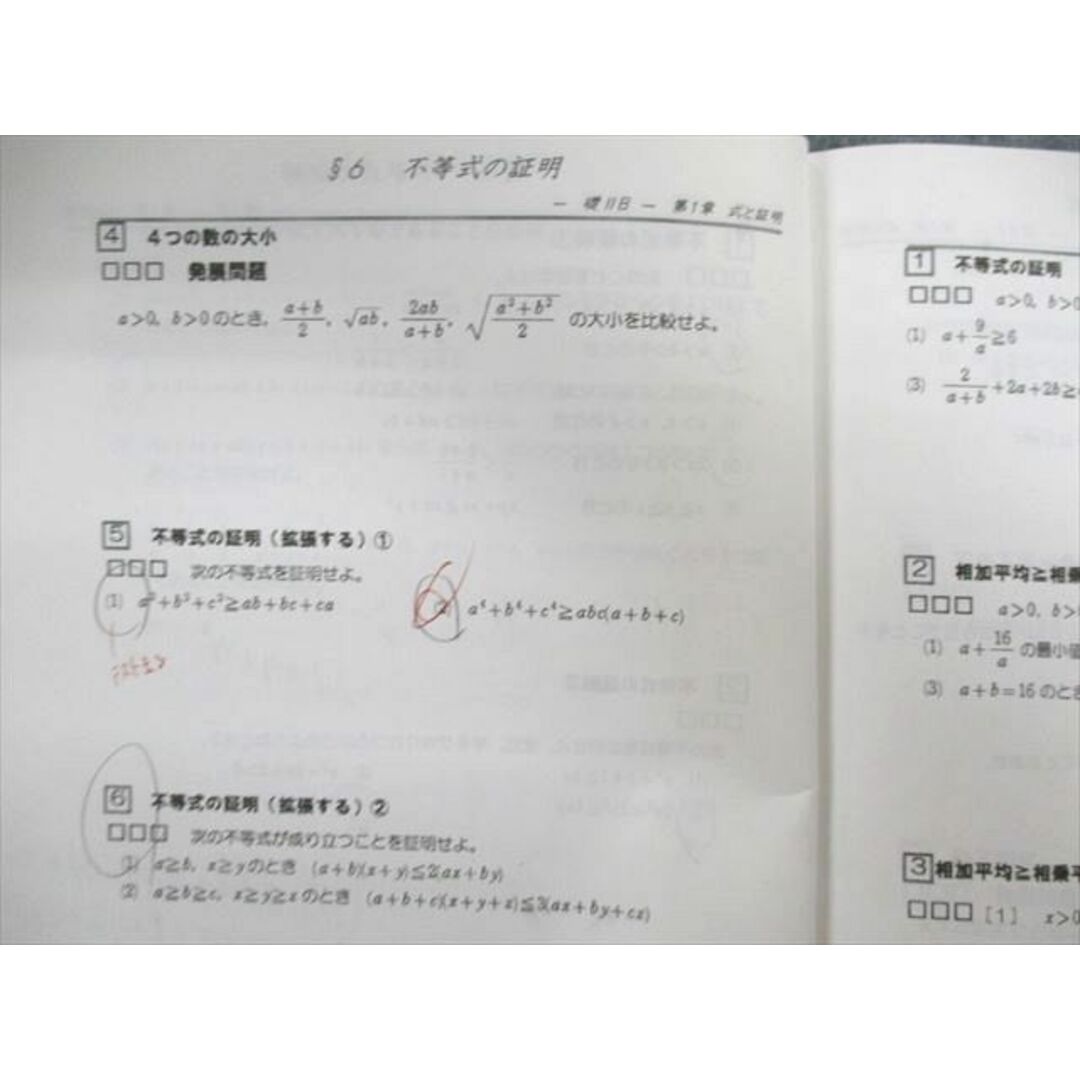 §6 不等式の証明
— 礎11日 — 第1章 式と証明
4 4つの数の大小
□□□ 発展問題
a>0, b>0のとき, (a+b)/2, √ab, 2ab/(a+b), √((a²+b²)/2) の大小を比較せよ。
5 不等式の証明(拡張する)①
□□□ 次の不等式を証明せよ。
(1) a²+b²+c²≧ab+bc+ca (2) a⁴+b⁴+c⁴≧abc(a+b+c)
6 不等式の証明(拡張する)②
□□□ 次の不等式が成り立つことを証明せよ。
(1) a≧b, x≧yのとき (a+b)(x+y)≦2(ax+by)
(2) a≧b≧c, x≧y≧zのとき (a+b+c)(x+y+z)≦3(ax+by+cz)
1 不等式の証明
□□□ a>0, b>0
(1) a+9/a≧6
(3) 2/(a+b)+2a+2b≧
2 相加平均≧相乗
□□□ a>0, b>
(1) a+16/a の最小値
(3) a+b=16のとき
3 相加平均≧相乗平
□□□ [1] x>0